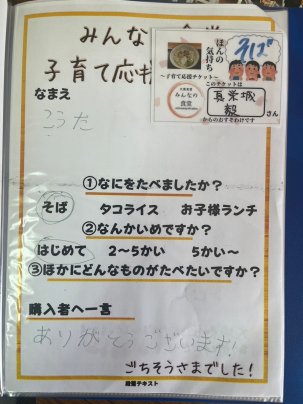 みんな
子育て応
なまえ
こうた
ほんの
気持ち
そば
~子育て応援チケット~
みんなの
食堂
このチケットは
真栄城
毅
さん
からのおすそわけです
①なにをたべましたか?
そば タコライス お子様ランチ
②なんかいめですか?
はじめて 2~5かい 5かい~
③ほかにどんなものがたべたいですか?
購入者へ一言
ありがとうございます!
ごちそうさまでした!
段落テキスト